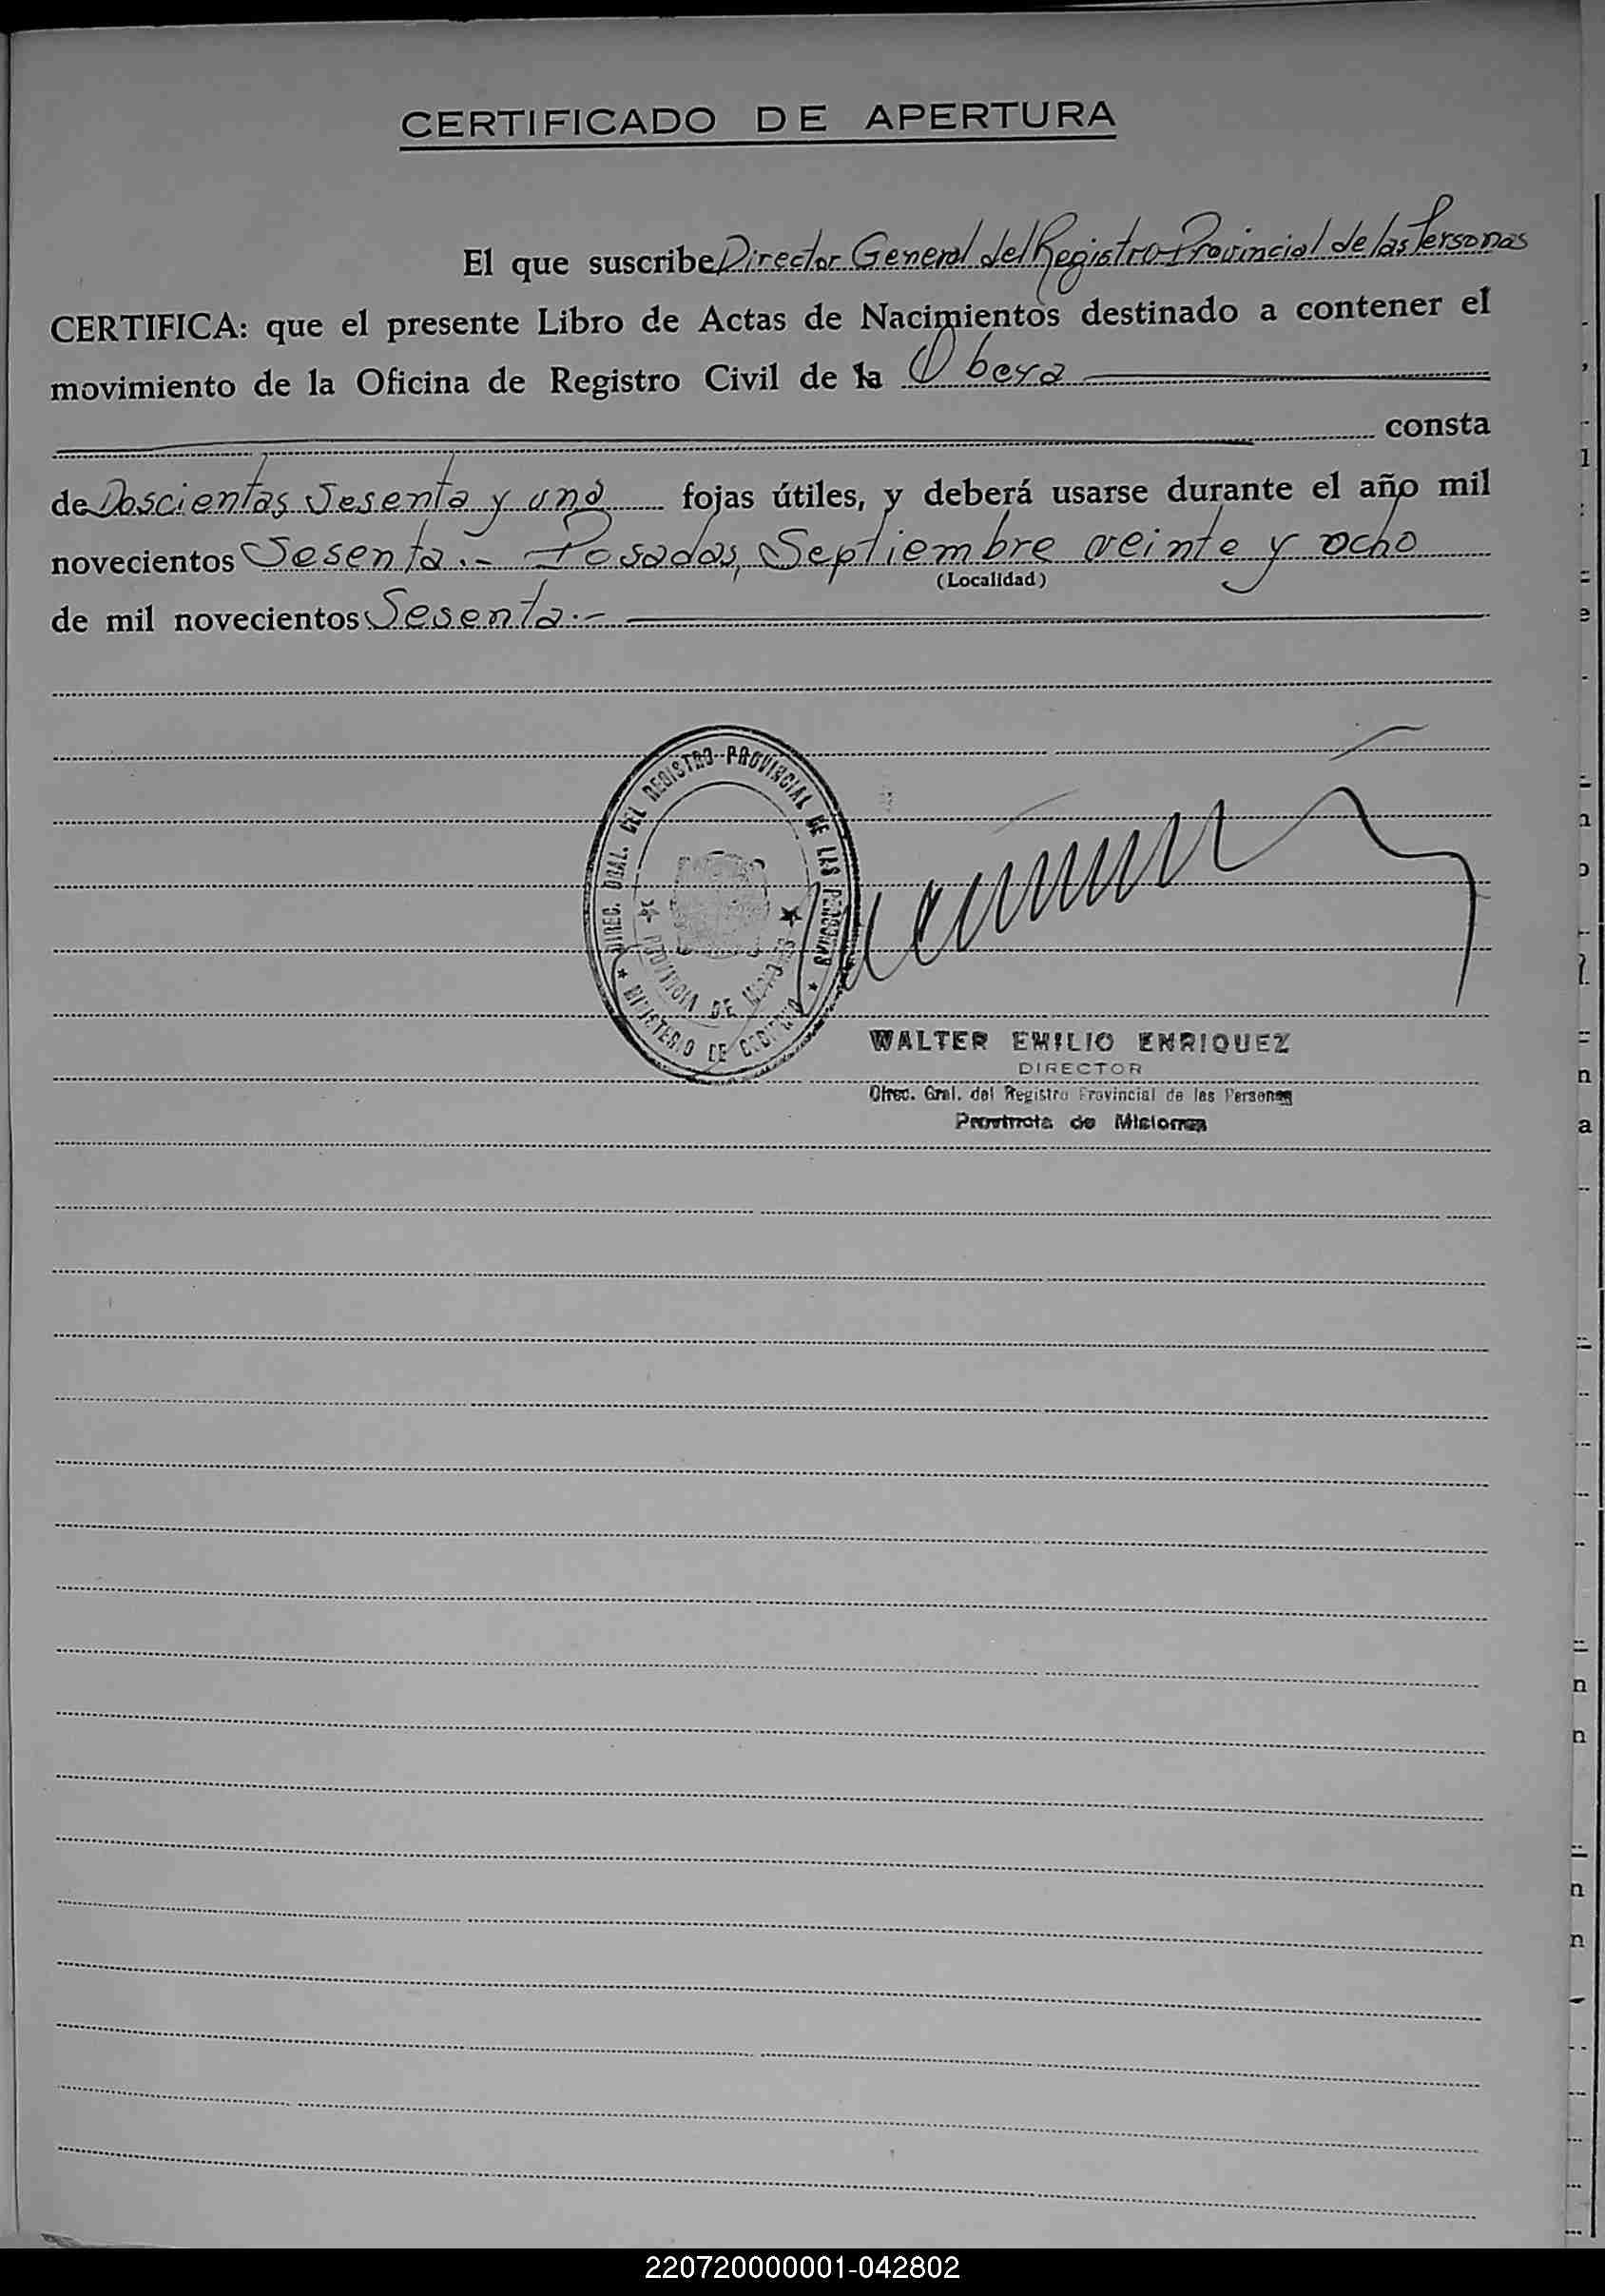 CERTIFICADO DE APERTURA
El que suscribe Director General del Registro Provincial de las Personas
CERTIFICA: que el presente Libro de Actas de Nacimientos destinado a contener el
movimiento de la Oficina de Registro Civil de la Obera
consta
de Doscientas Sesenta y una fojas útiles, y deberá usarse durante el año mil
novecientos Sesenta.- Posadas, Septiembre veinte y ocho
(Localidad)
de mil novecientos Sesenta.-
DIREC. GRAL. DEL REGISTRO PROVINCIAL DE LAS PERSONAS
PROVINCIA DE MISIONES
MINISTERIO DE GOBIERNO
WALTER EMILIO ENRIQUEZ
DIRECTOR
Direc. Gral. del Registro Provincial de las Personas
Provincia de Misiones
220720000001-042802